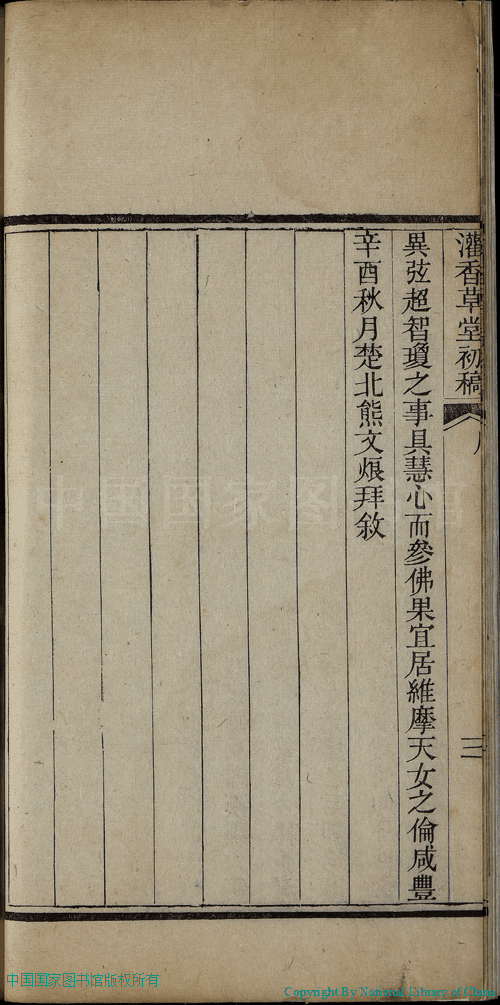 灌香草堂初稿
三
異弦超智瓊之事具慧心而參佛果宜居維摩天女之倫咸豐
辛酉秋月楚北熊文烺拜敘
中国国家图书馆
中国国家图书馆版权所有
Copyright By National Library of China